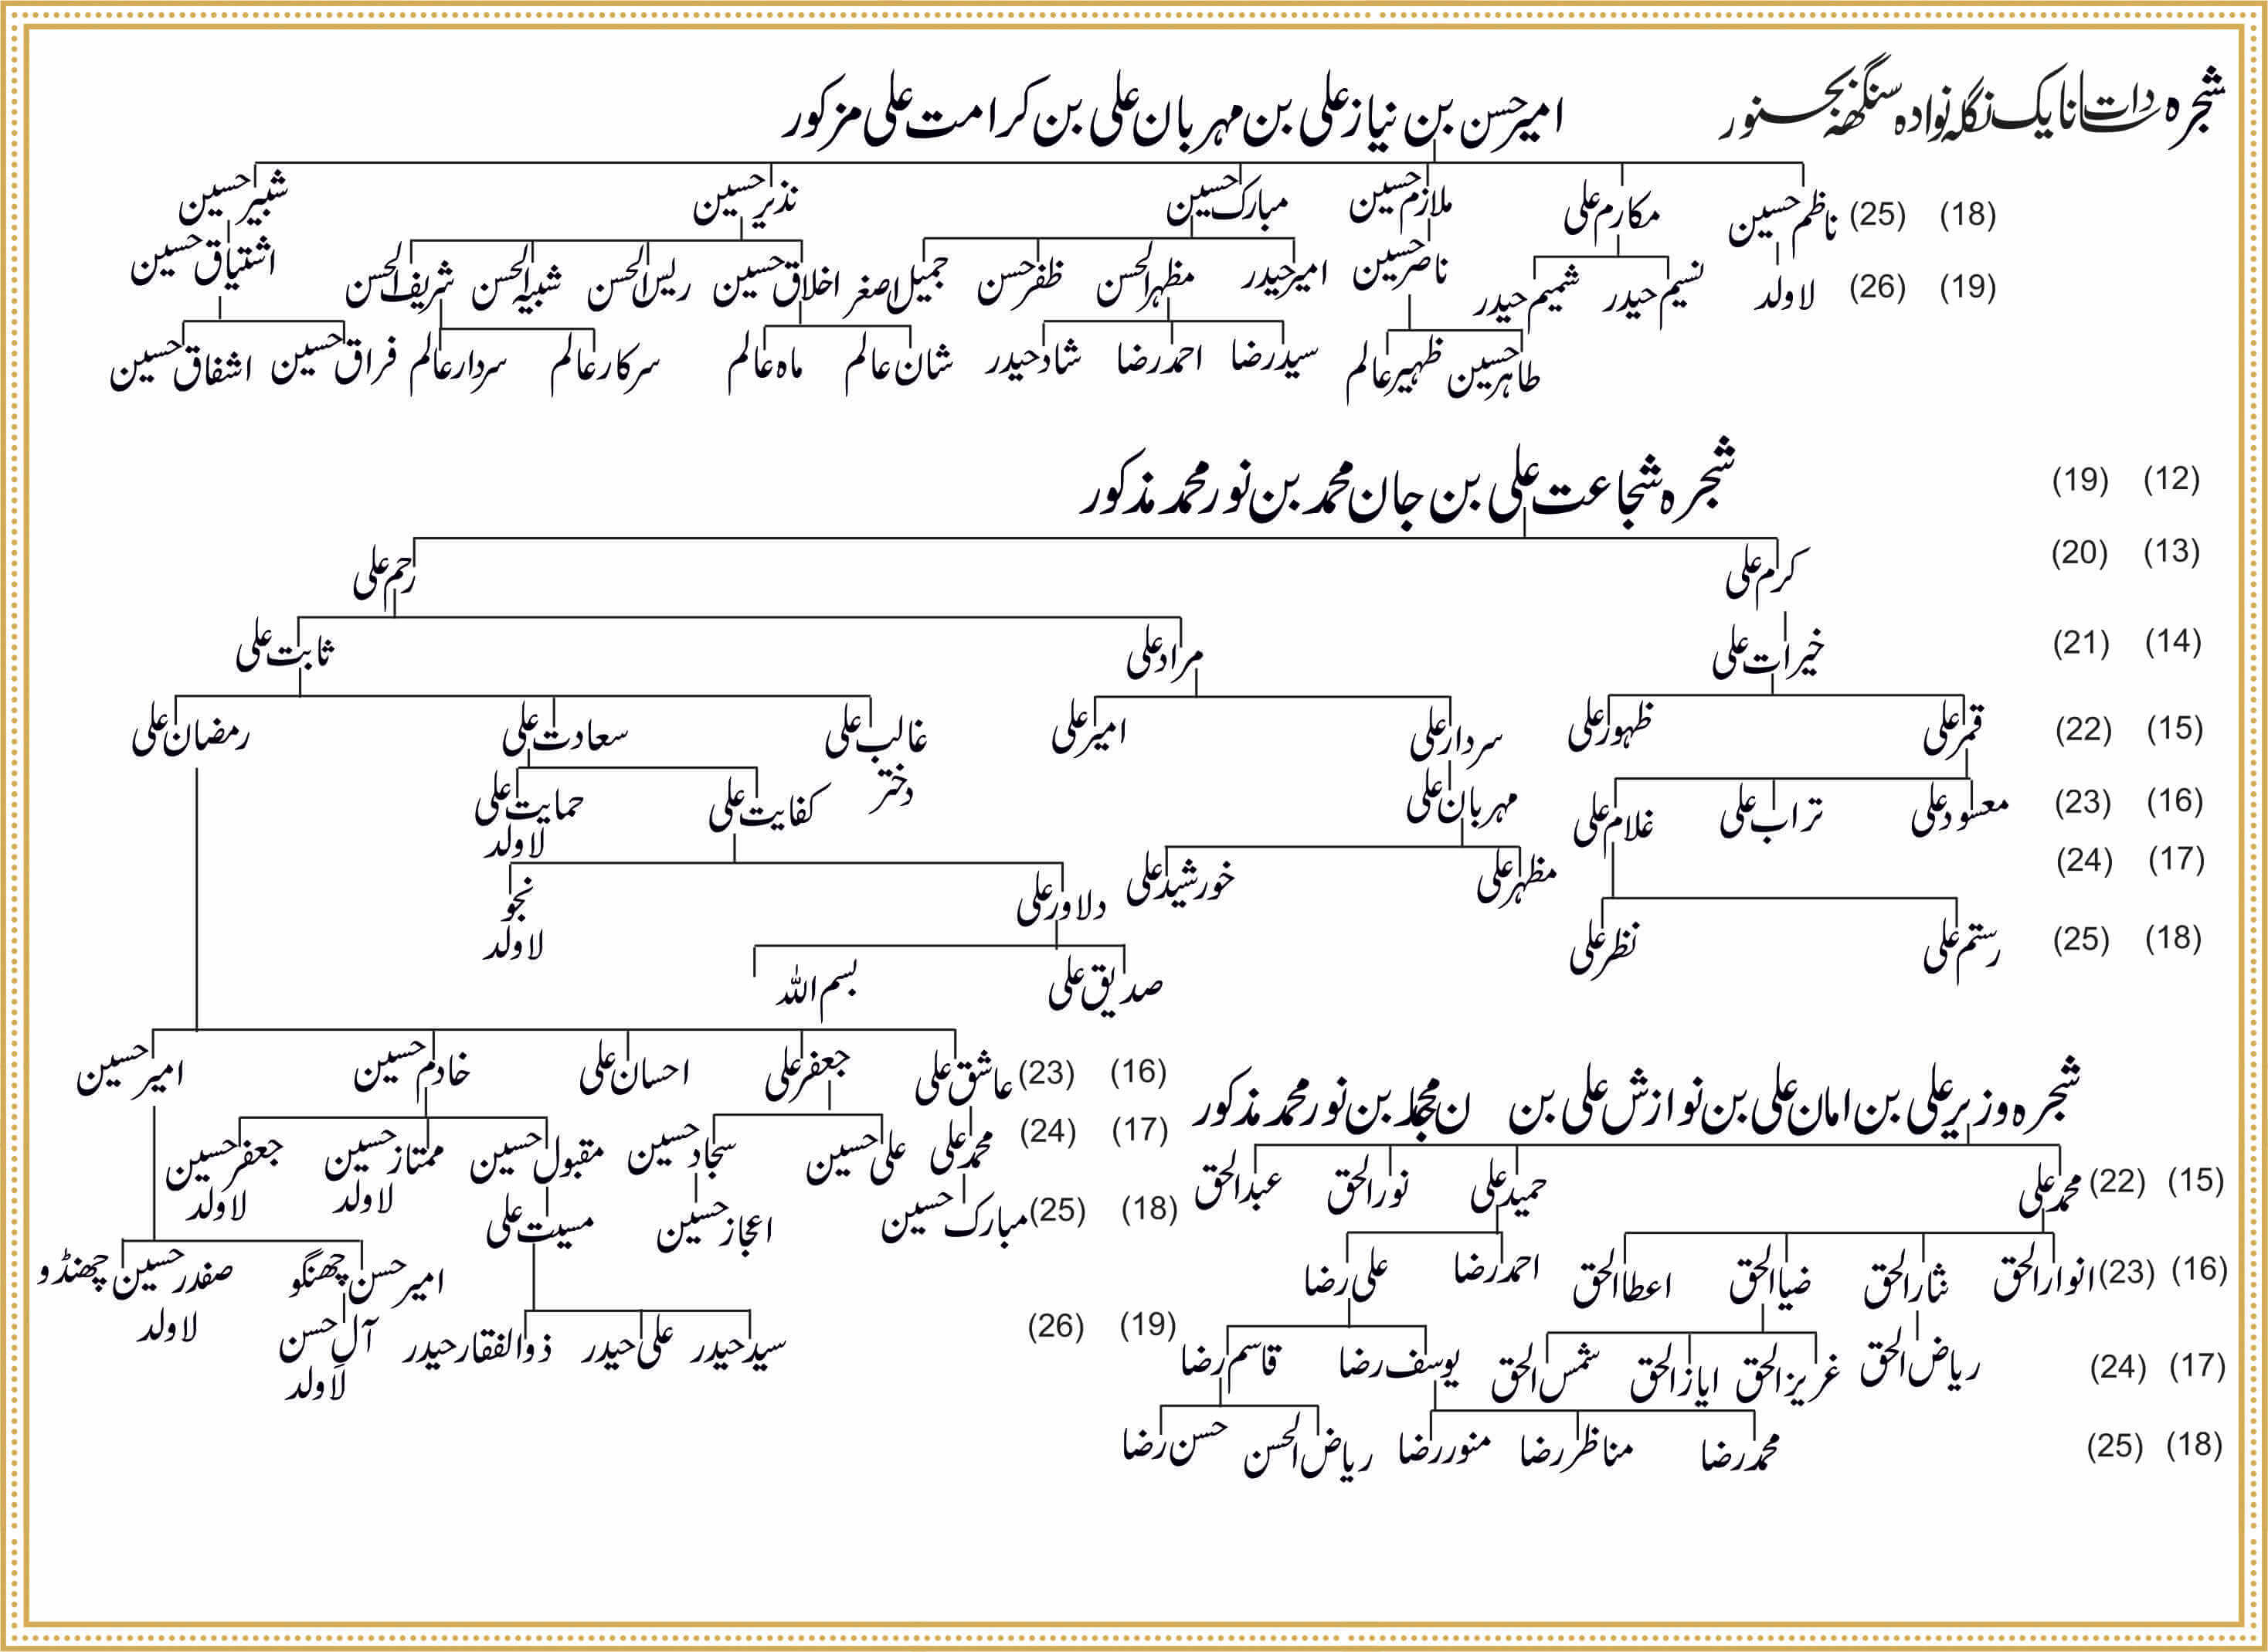 شجرہ سادات نایک نگلہ نوادہ سنگھہ بجنور
امیر حسن بن نیاز علی بن مہربان علی بن کرامت علی مزکور
(18) (25) ناظم حسین مکارم علی ملازم حسین مبارک حسین نذیر حسین شبیر حسین
(19) (26) لاولد نسیم حیدر شمیم حیدر ناصر حسین امیر حیدر مظہر الحسن ظفر حسن جمیل اصغر اخلاق حسین ریس الحسن شبیہ الحسن شریف الحسن اشتیاق حسین
طاہر حسین ظہیر عالم سید رضا احمد رضا شاد حیدر شان عالم ماہ عالم سرکار عالم سردار عالم فراق حسین اشفاق حسین
شجرہ شجاعت علی بن جان محمد بن نور محمد مذکور
(12) (19)
(13) (20) کرم علی رحم علی
(14) (21) خیرات علی مراد علی ثابت علی
(15) (22) قمر علی ظہور علی سردار علی امیر علی غالب علی سعادت علی رمضان علی
دختر
(16) (23) معسود علی تراب علی غلام علی مہربان علی کفایت علی حمایت علی
لاولد
(17) (24) مظہر علی خورشید علی دلاور علی نجو
لاولد
(18) (25) رستم علی نظر علی صدیق علی بسم اللہ
(16) (23) عاشق علی جعفر علی احسان علی خادم حسین امیر حسین
(17) (24) محمد علی علی حسین سجاد حسین مقبول حسین ممتاز حسین جعفر حسین
لاولد لاولد
(18) (25) مبارک حسین اعجاز حسین مسیت علی
امیر حسن چھنگو صفدر حسین چھنڈو
لاولد
(19) (26) سید حیدر علی حیدر ذوالفقار حیدر آل حسن
لاولد
شجرہ وزیر علی بن امان علی بن نوازش علی بن ن محمد بن نور محمد مذکور
(15) (22) محمد علی حمید علی نور الحق عبد الحق
(16) (23) انوار الحق نثار الحق ضیا الحق اعطا الحق احمد رضا علی رضا
(17) (24) ریاض الحق عزیز الحق ایاز الحق شمس الحق یوسف رضا قاسم رضا
(18) (25) محمد رضا مناظر رضا منور رضا ریاض الحسن حسن رضا